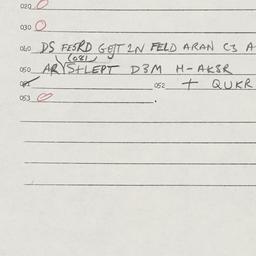 020
030
040 DS FESRD GEJT 2N FELD ARAN C3 A
(08L)
050 AR S+LEPT D3M H-AKSR
052 + QUKR
053